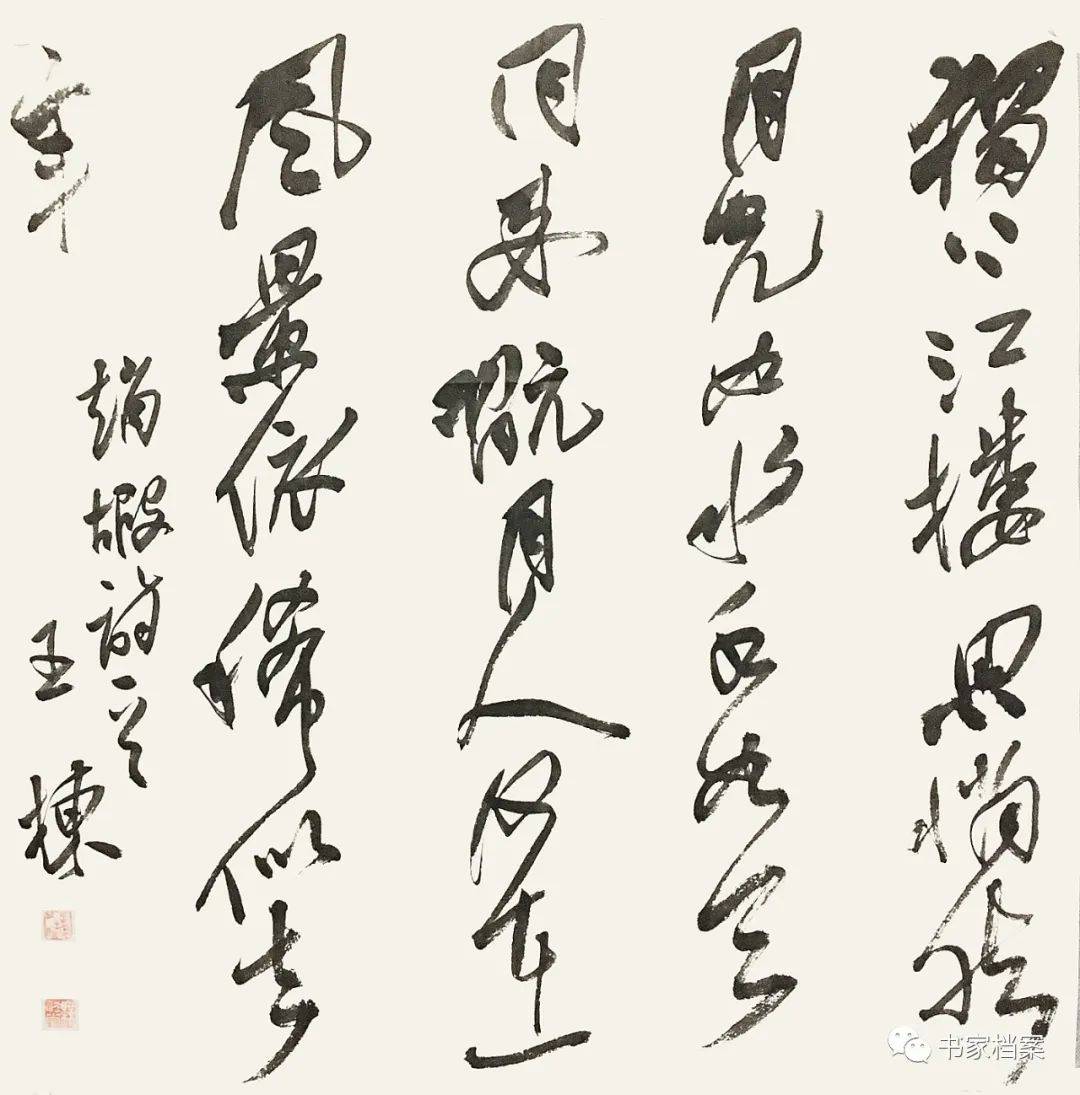 獨上江樓思悄然
月光如水水如天
同来翫月人何在
風景依稀似去
年
趙嘏詩一首
王棟
书家档案